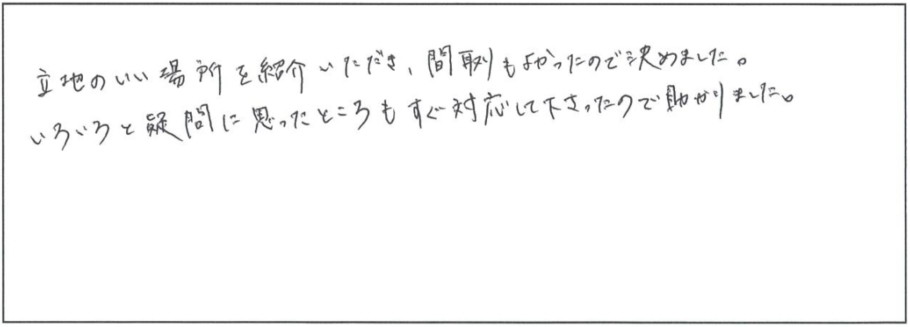 立地のいい場所を紹介いただき、間取りもよかったので決めました。
いろいろと疑問に思ったところもすぐ対応して下さったので助かりました。